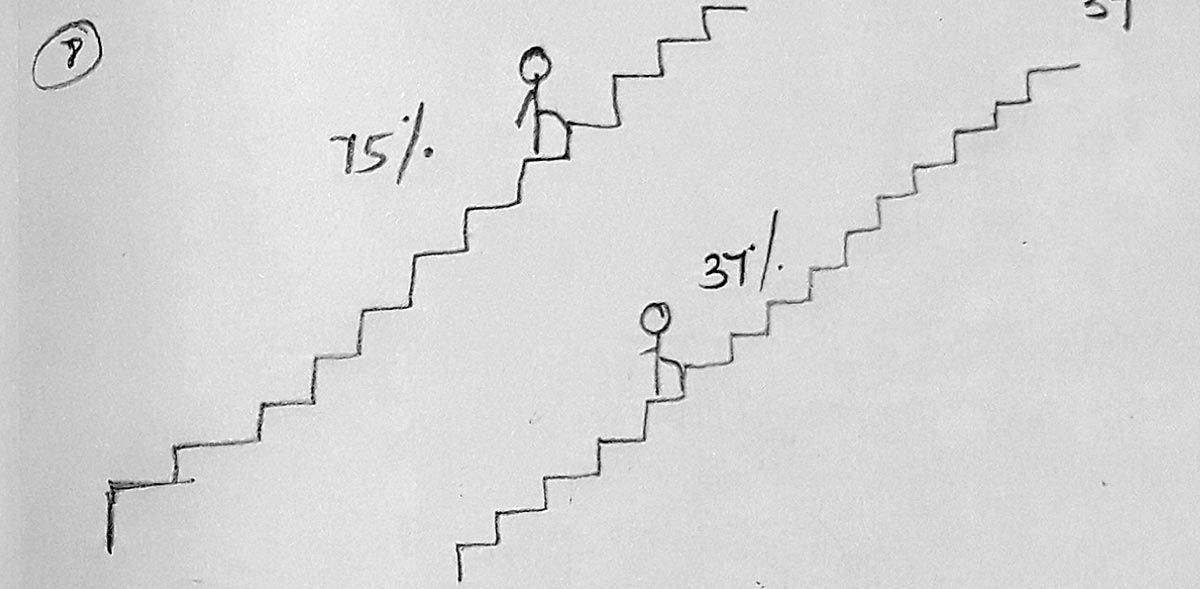 8
75%
37%